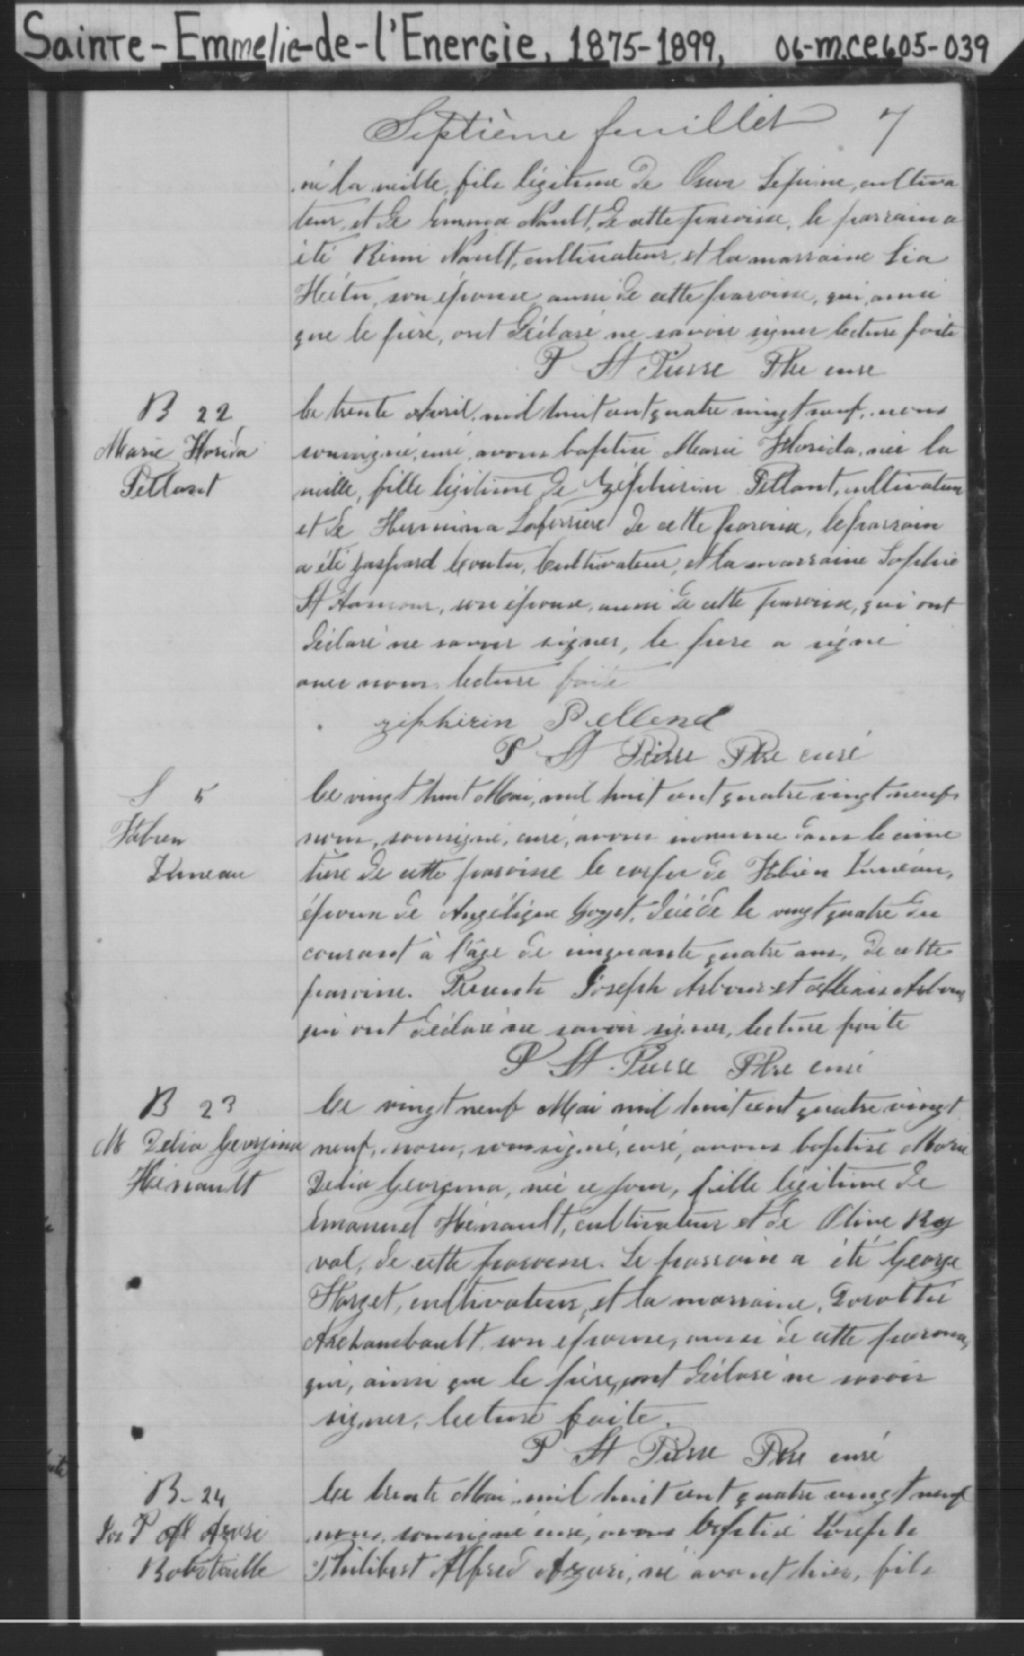 Sainte-Emmelie-de-l'Energie, 1875-1899, 06-M.CE605-039
Septième feuillet 7
né la veille, fils légitime de Lepine, cultiva
teur, et de Emma Nault, de cette paroisse, le parrain a
été Rémi Nault, cultivateur, et la marraine Lia
Hétu, son épouse, aussi de cette paroisse, qui, ainsi
que le père, ont déclaré ne savoir signer lecture faite
P St Pierre Ptre curé
B 22
Marie Florida
Pellant
Le trente Avril, mil huit cent quatre vingt neuf, nous
soussigné, curé, avons baptisé Marie Florida, née la
veille, fille légitime de Zéphirin Pellant, cultivateur
et de Hermina Laferrière de cette paroisse, le parrain
a été Gaspard Coutu, Cultivateur, et la marraine Sophie
St Amour, son épouse, aussi de cette paroisse, qui ont
déclaré ne savoir signer, le père a signé
avec nous. lecture faite
zéphirin Pellend
P St Pierre Ptre curé
S 5
Fabien
Juneau
Le vingt huit Mai, mil huit cent quatre vingt neuf
nous, soussigné, curé, avons inhumé dans le cime
tière de cette paroisse le corps de Fabien Junéau,
époux de Angélique Goyet, décédé le vingt quatre du
courant à l'âge de cinquante quatre ans, de cette
paroisse. Présents Joseph Arbour et Arbour
qui ont déclaré ne savoir signer, lecture faite
P St. Pierre Ptre curé
B 23
M Delia Georgina
Hénault
Le vingt neuf Mai mil huit cent quatre vingt
neuf, nous, soussigné, curé, avons baptisé Marie
Delia Georgina, née ce jour, fille légitime de
Emanuel Hénault, cultivateur et de Olive Ry
val, de cette paroisse. Le parrain a été George
cultivateur, et la marraine,
Archambault son épouse, aussi de cette paroisse,
qui, ainsi que le père, ont déclaré ne savoir
signer. lecture faite.
P St Pierre Ptre curé
B- 24
Jos P Al Azari
Robitaille
Le trente Mai, mil huit cent quatre vingt neuf
nous, soussigné curé, avons baptisé Joseph
Philibert Alfred Azari, né avant hier, fils